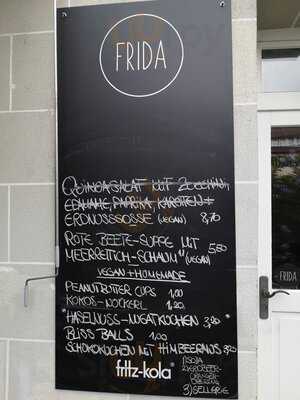 FRIDA
QUINOASALAT MIT ZUCCHINI,
EDAMAME, PAPRIKA, KAROTTEN +
ERDNUSSSOSSE (VEGAN) 8,70
ROTE BEETE-SUPPE MIT 5,50
MEERRETTICH-SCHAUM (VEGAN)
VEGAN + HOMEMADE
PEANUTBUTTER CUPS 1,00
KOKOS-NOCKERL 1,20
"HASELNUSS-NUGATKUCHEN 3,20
BLISS BALLS 1,00
SCHOKOKUCHEN MIT HIMBEERMUS 3,20
fritz-kola
FRIDA